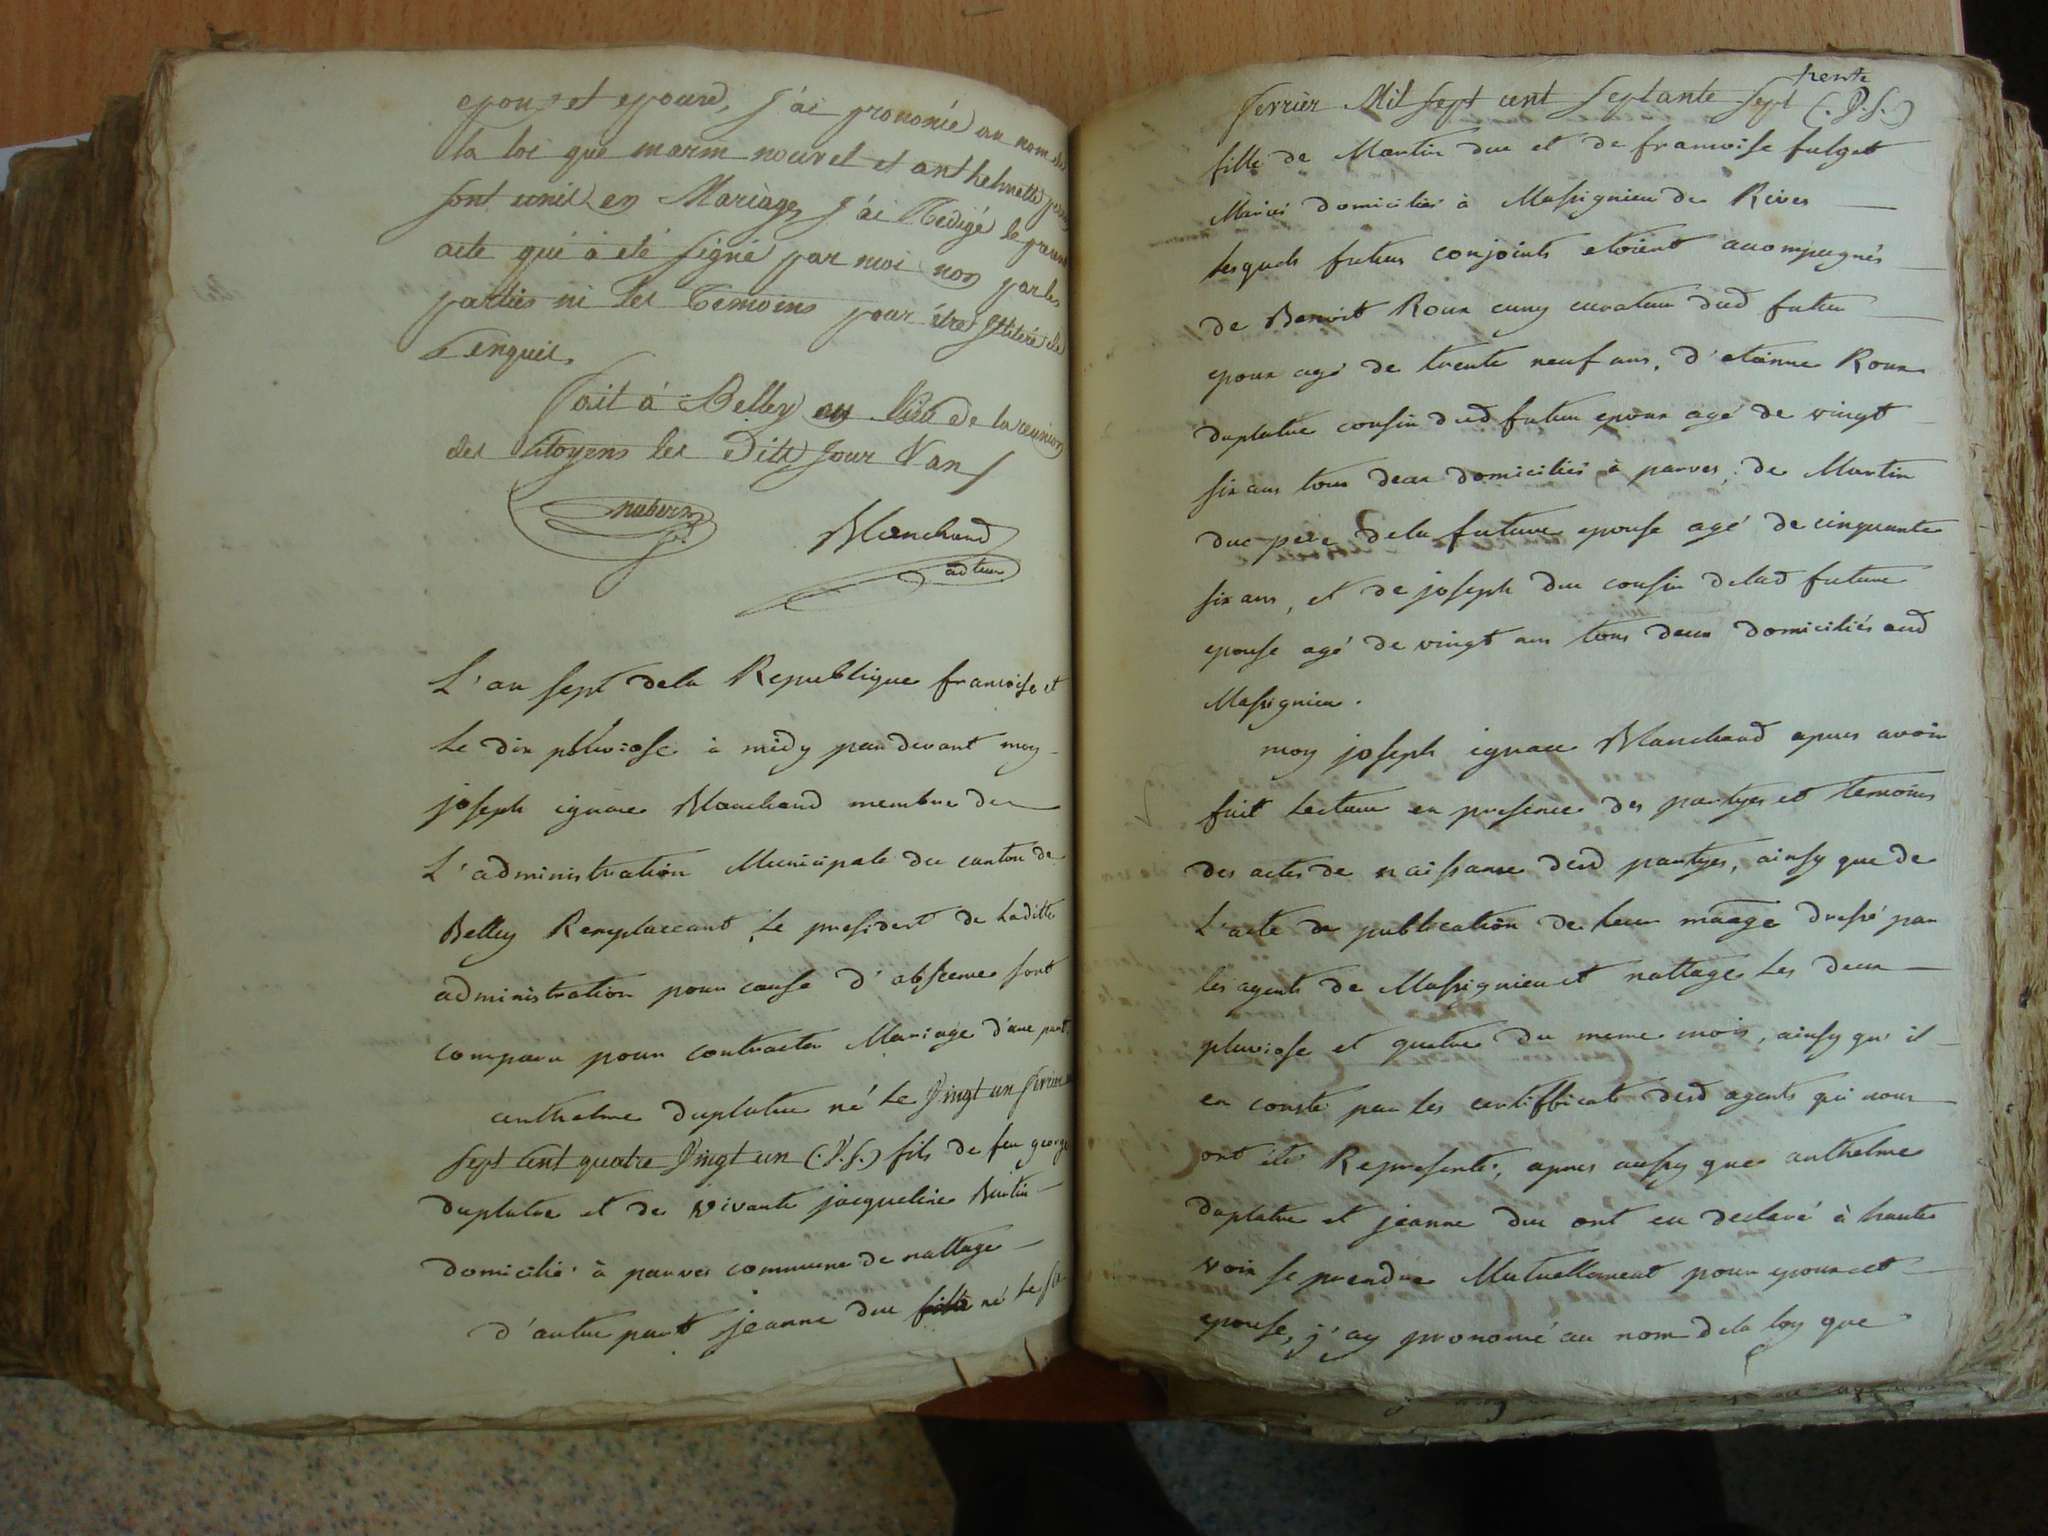 epoux et epouse, J'ai prononcé au nom de
la loi que marin nouvel et anthelmette
sont unis en Mariage, J'ai Redigé le present
acte qui à eté signé par moi non par les
parties ni les Temoins pour être Illiteré de
enquis
fait à Belley au lieu de la reunion
des Citoyens les Ditt Jour & an
Blanchard
adteur
L'an sept dela Republique francoise et
le dix pluviose à midy pardevant moy
joseph ignace Blanchard membre de
L'administration Municipale du canton de
Belley Remplaccant le president de Laditte
administration pour cause d'absence sont
comparu pour contracter Mariage d'une part
anthelme duplatre né le Vingt un fevrier
sept cent quatre Vingt un (:V.S.) fils de feu george
duplatre et de vivante jacqueline Burtin
domicilié à parves commune de nattage
d'autre part jeanne duc né le
trente
fevrier Mil sept cent septante sept (:V.S.)
fille de Martin duc et de francoise fulget
Mariés domiciliés à Massignieu de Rives
lesquels futurs conjoints etoient accompagnés
de Benoit Roux curateur dud futur
epoux agé de trente neuf ans, d'etienne Roux
duplatre cousin dud futur epoux agé de vingt
six ans tous deux domiciliés à parves, de Martin
duc pere dela future epouse agé de cinquante
six ans, et de joseph duc cousin delad future
epouse agé de vingt ans tous deux domiciliés aud
Massignieu.
moy joseph ignace Blanchard apres avoir
fait Lecture en presence des partyes et temoins
des actes de naissance desd partyes, ainsy que de
L'acte de publication de leur maage dressé par
les agents de Massignieu et nattage les deux
pluviose et quatre du meme mois, ainsy qu'il
en conste par les certifficats desd agents qui nous
ont été Representé, apres aussy que anthelme
duplatre et jeanne duc ont eu declaré à haute
voix se prendre Mutuellement pour epoux et
epouse, j'ay prononcé au nom dela loy que